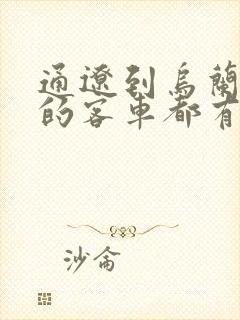 通遼到烏蘭
的客車都有
沙侖